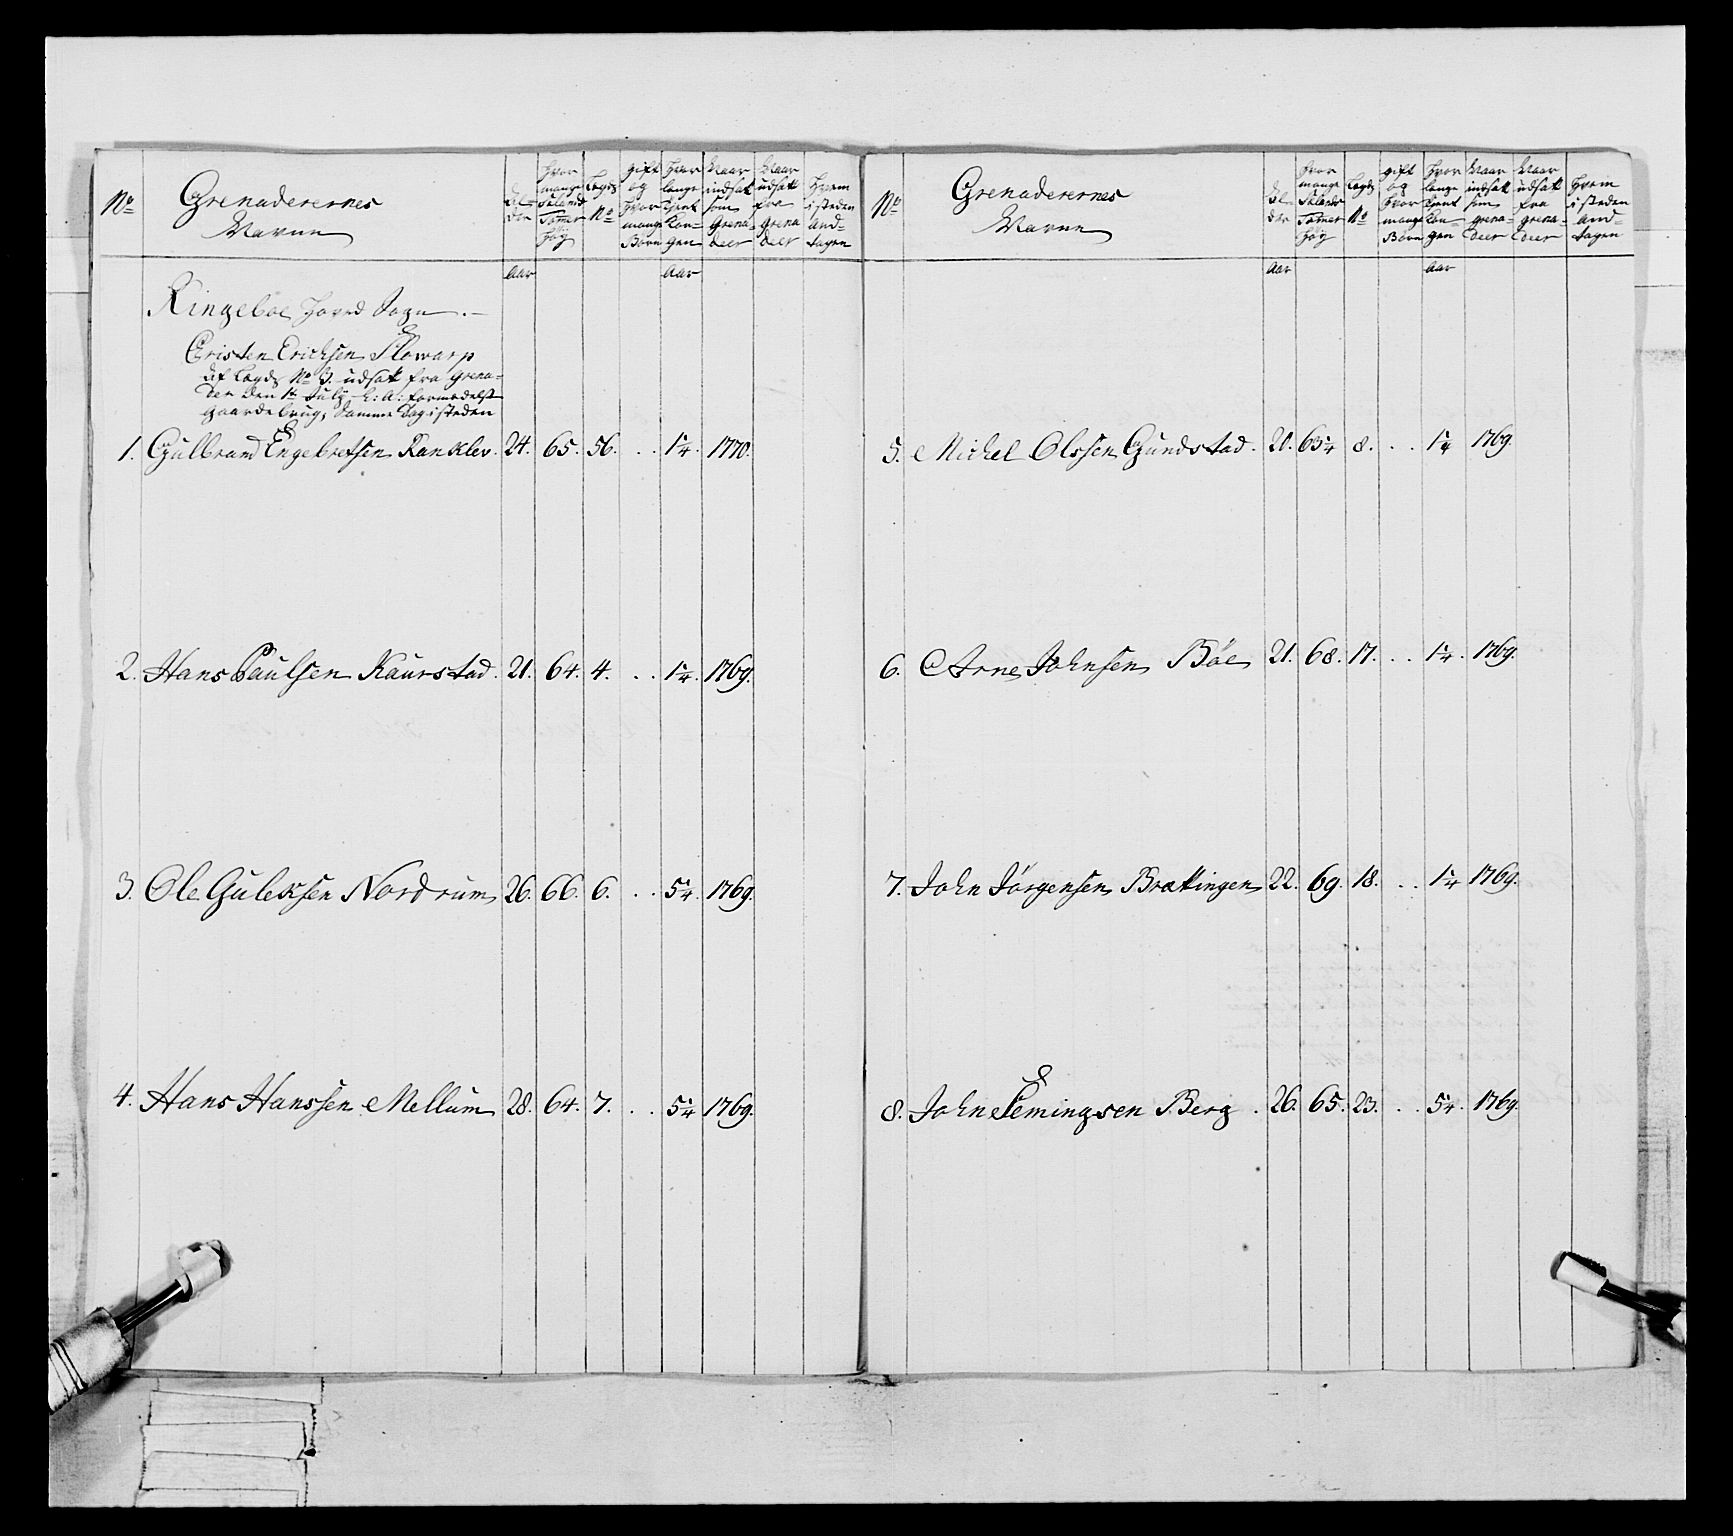 No
Grenaderernes
Navne
Al-
der
hvor
mange
Siæland
Tomer
høy
Lægds
No
gift
og
hvor
mange
Børn
hvor
lange
tient
Kon-
gen
Naar
indsatt
som
Grena-
deer
Naar
udsatt
fra
Grena
deer
hvem
i steden
and-
tagen
Aar
Aar
Ringeboe Hoved Sogn.
Christen Erichsen
af Lægds No 3. udsatt fra grena-
der den 1te July h: a: formedelst
gaardebrug, Samme Dag i steden
1. Gulbrand Engebretsen Ranklev. 24. 65. 56. . . 1 1/4. 1770.
2. Hans Paulsen Kaurstad. 21. 64. 4. . . 1 1/4. 1769.
3. Ole Gulecksen Nordrum 26. 66. 6. . . 5 1/4. 1769.
4. Hans Hanssen Mellum 28. 64. 7. . . 5 1/4 1769.
No
Grenaderernes
Navne
Al-
der
hvor
mange
Siælands
Tomer
høy
Lægds
No
gift
og
hvor
mange
Børn
hvor
lange
tient
Kon-
gen
Naar
indsatt
som
grena-
deer
Naar
udsatt
fra
grena-
deer
hvem
i steden
and-
tagen
Aar
Aar
5. Michel Olssen Gundstad. 20. 63 1/4 8. . . 1 1/4 1769.
6. Arne Johnsen Böe 21. 68. 17. . . 1 1/4. 1769.
7. John Jörgensen Brættingen 22. 69. 18. . . 1 1/4 1769.
8. John Flemingsen Berg. 26. 65. 23. . . 5 1/4. 1769.